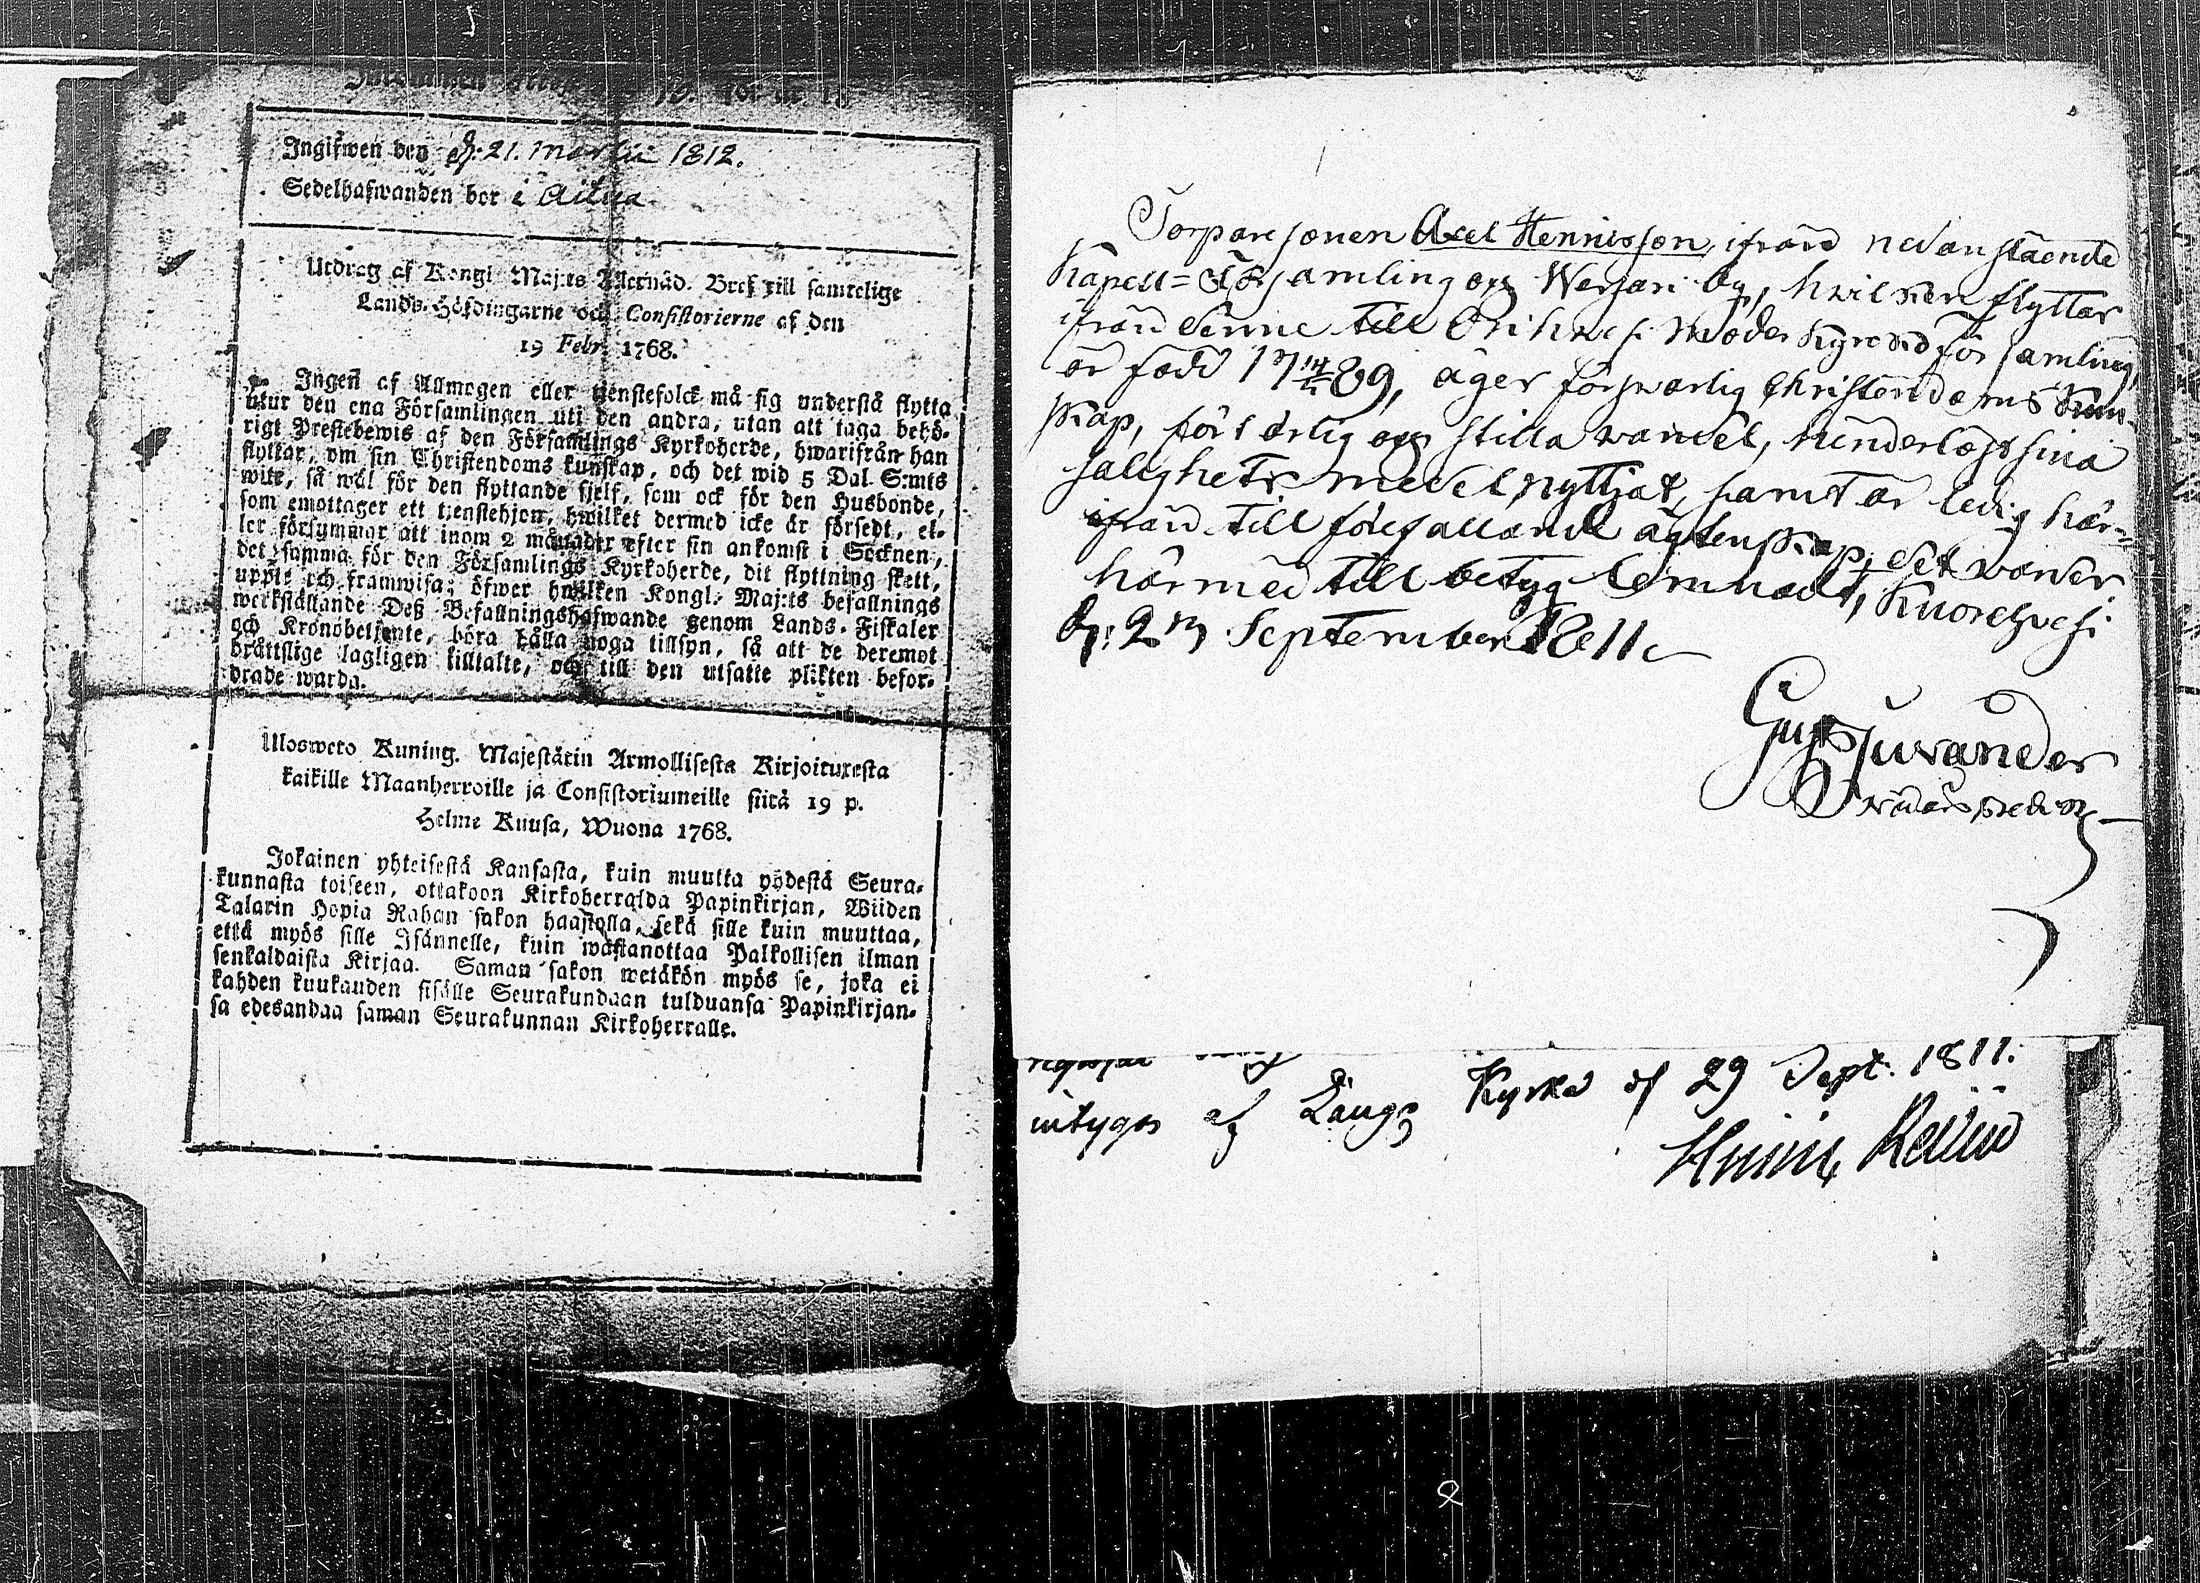 Ingifwen den d. 21. Martii 1812.
Sedelhafwanden bor i Aitua
Utdrag af Kongl. Maj:ts Allernåd. Bref till samtelige
Lands-Höfdingarne och Consistorierne af den
19 Febr. 1768.
Ingen af Allmogen eller tjenstefolck må sig understå flytta
utur den ena Församlingen uti den andra, utan att taga behö-
rigt Prestebewis af den Församlings Kyrkoherde, hwarifrån han
flyttar, om sin Christendoms kunskap, och det wid 5 Dal. S:mts
wite, så wäl för den flyttande sjelf, som ock för den Husbonde,
som emottager ett tjenstehjon, hwilket dermed icke är försedt, el-
ler försummar att inom 2 månader efter sin ankomst i Socknen,
det samma för den Församlings Kyrkoherde, dit flyttning skett,
uppte och framwisa; öfwer hwilken Kongl. Maj:ts befallnings
werkställande Deß Befallningshafwande genom Lands-Fiskaler
och Kronobetjente, böra hålla noga tillsyn, så att de deremot
bråttslige lagligen tilltalte, och till den utsatte plikten befor-
drade warda.
Ulosweto Kuning. Majestätin Armollisesta Kirjoituxesta
kaikille Maanherroille ja Consistoriumeille siitä 19 p.
Helme Kuusa, Wuona 1768.
Jokainen yhteisestä Kansasta, kuin muutta yhdestä Seura-
kunnasta toiseen, ottakoon Kirkoherralda Papinkirjan, Wiiden
Talarin Hopia Rahan sakon haastolla, sekä sille kuin muuttaa,
että myös sille Isännelle, kuin wastanottaa Palkollisen ilman
senkaldaista Kirjaa. Saman sakon wetäkön myös se, joka ei
kahden kuukauden sisälle Seurakundaan tulduansa Papinkirjan-
sa edesandaa saman Seurakunnan Kirkoherralle.
Torparesonen Axel Hennisson, ifrån nedanstående
Kapell-Församling och Wersari by, hwilken flyttar
ifrån denne till Orihwesi Moder Kyrko församling,
är född 17 89, äger förswarlig Christendoms Kun-
skap, fört ärlig och stilla wandel, hinderlöst sina
salighets medel nyttjat, samt är ledig här-
ifrån till förefallande äktenskap; det warder
härmed till betyg lemnadt, Kuorewesi
d. 27 September 1811
Gust Juvander

intygas af Länge Kyrka d 29 Sept. 1811.